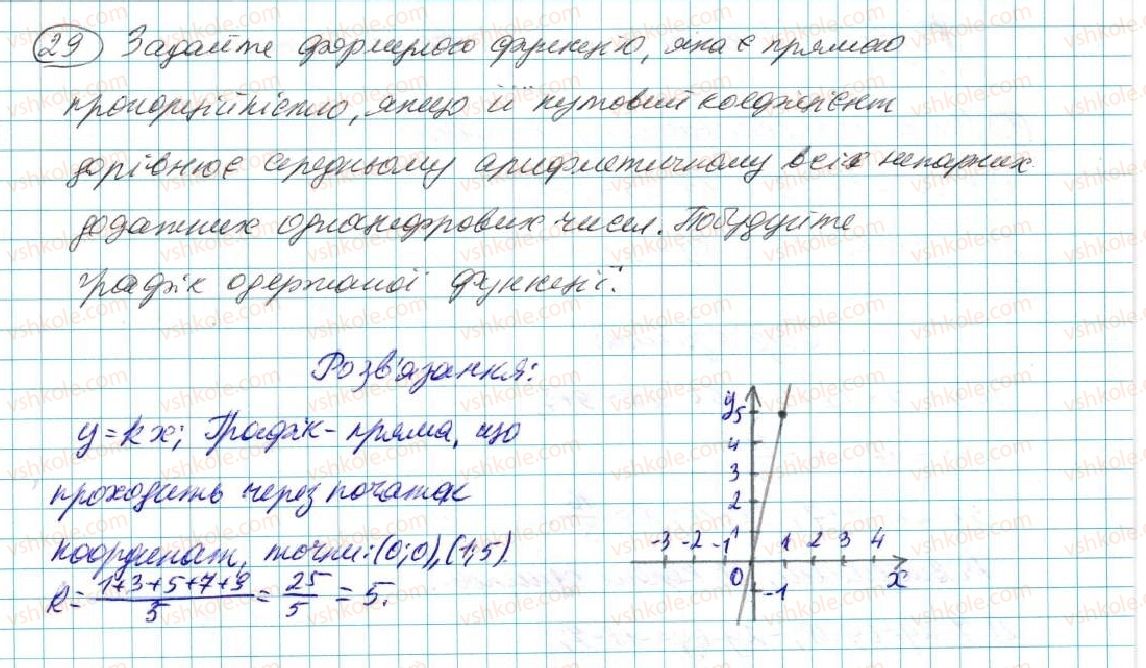 29 Задайте формулою функцію, яка є прямою
пропорційністю, якщо її кутовий коефіцієнт
дорівнює середньому арифметичному всіх непарних
додатних одноцифрових чисел. Побудуйте
графік одержаної функції.
Розв'язання:
y=kx; Графік - пряма, що
проходить через початок
координат, точки: (0;0), (1;5).
k = (1+3+5+7+9)/5 = 25/5 = 5.
y
5
4
3
2
1
-3 -2 -1 1 2 3 4
0
x
-1
vshkole.com